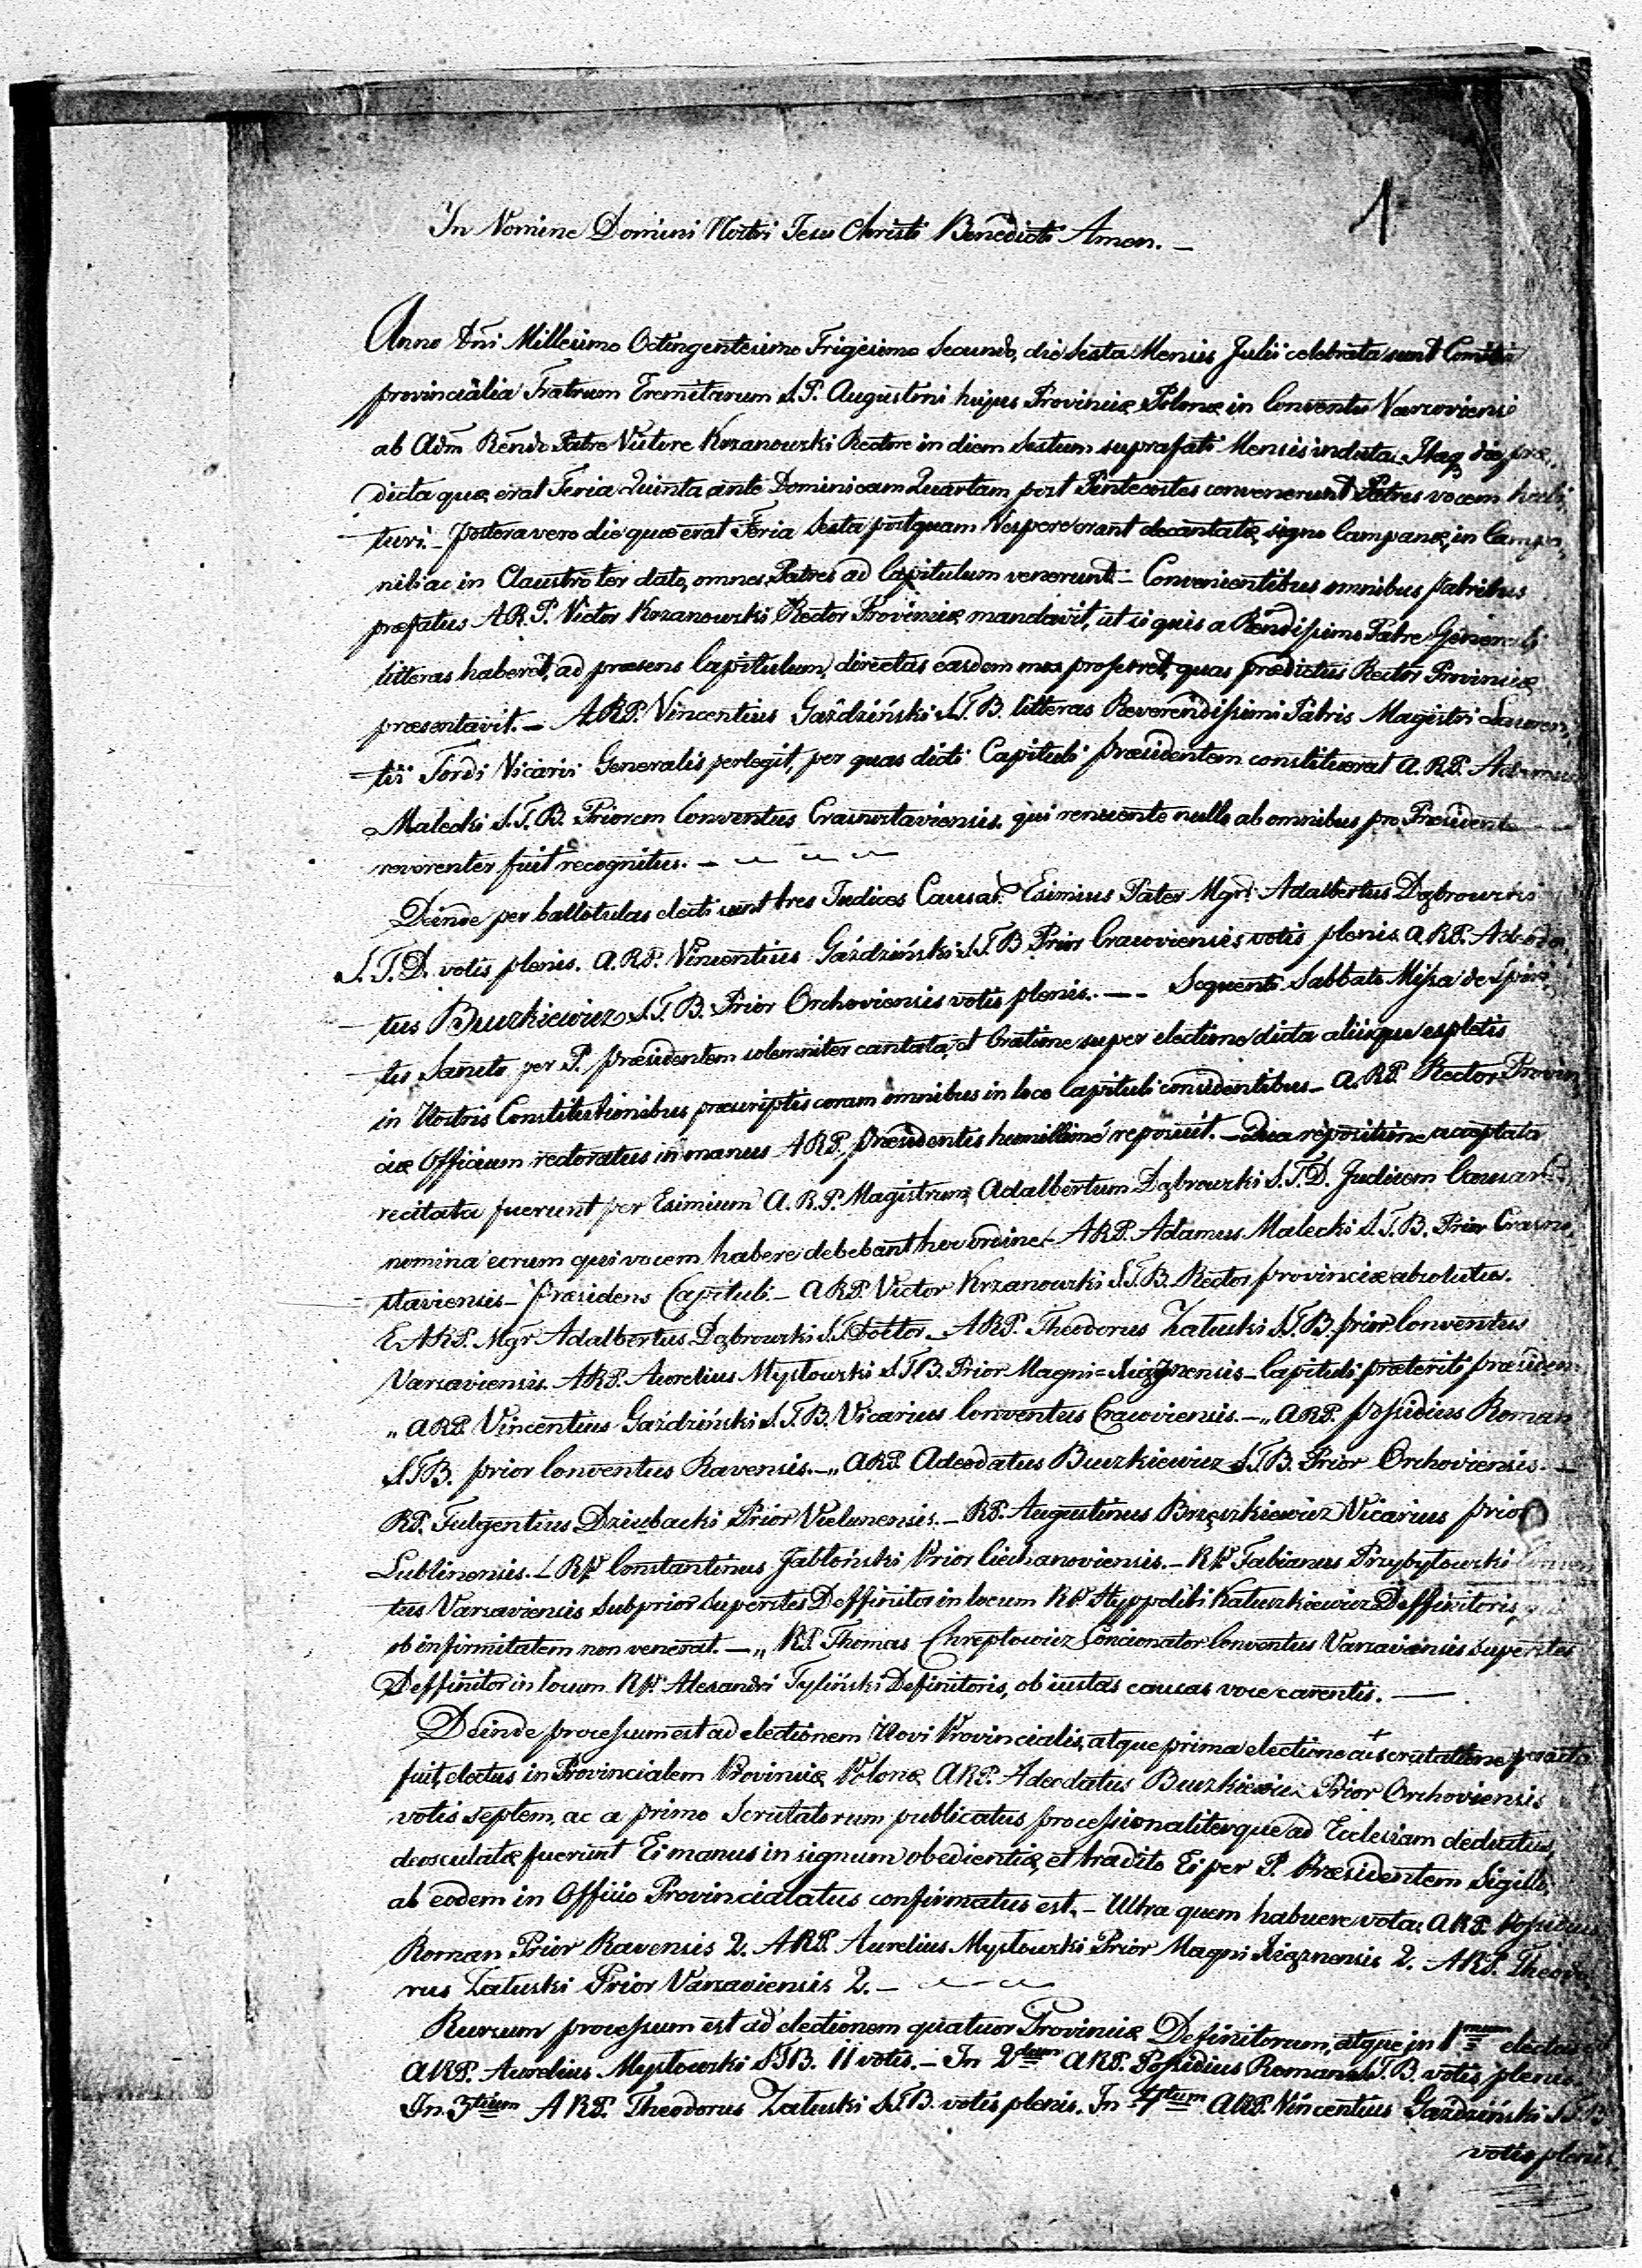 1
In Nomine Domini Nostri Jesu Christi Benedicti Amen. —
Anno Dni Millesimo Octingentesimo Trigesimo Secundo, die Sexta Mensis Julii celebrata sunt Comitia
provincialia Fratrum Eremitarum S.P. Augustini hujus Provinciæ Polonæ in Conventu Varsoviensi
ab Adm Rendo Patre Victore Krzanowski Rectore in diem Sextum suprafati Mensis indicta. Itaq die præ,
dicta quæ erat Feria Quinta ante Dominicam Quartam post Pentecostes convenerunt Patres vocem habi,
turi. – Postera vero die quæ erat Feria Sexta postquam Vesperæ erant decantatæ, signo Campanæ, in Campa,
nili ac in Claustro ter dato, omnes Patres ad Capitulum venerunt. – Convenientibus omnibus patribus
præfatus A.R.P. Victor Krzanowski Rector Provinciæ mandavit, ut si quis a Rendissimo Patre Generali
litteras haberet, ad præsens Capitulum, directas easdem mox proferret, quas prædictus Rector Provinciæ
præsentavit. – A.R.P. Vincentius Gaździński S.T.B. litteras Reverendissimi Patris Magistri Lauren,
tii Tordi Vicarii Generalis perlegit, per quas dicti Capituli præsidentem constituerat A.R.P. Adamus
Malecki S.T.B. Priorem Conventus Crasnostaviensis. qui renuente nullo ab omnibus pro Præsidente
reverenter fuit recognitus. –
Deinde per ballotulas electi sunt tres Judices Causar. Eximius Pater Mgr. Adalbertus Dąbrowski
S.T.D. votis plenis. A.R.P. Vincentius Gaździński S.T.B. Prior Cracoviensis votis plenis. A.R.P. Adeoda,
tus Buczkiewicz S.T.B. Prior Orchoviensis votis plenis. — Sequenti Sabbato Missa de Spiri,
tu Sancto per P. præsidentem solemniter cantata, et Oratione super electione dicta aliisque expletis
in Nostris Constitutionibus præscriptis coram omnibus in loco Capituli considentibus – A.R.P. Rector Provin,
ciæ Officium rectoratus in manus A.R.P. Præsidentis humillime reposuit. – Qua repositione acceptata
recitata fuerunt per Eximium A.R.P. Magistrum Adalbertum Dąbrowski S.T.D. Judicem Causar.
nomina eorum qui vocem habere debebant hoc ordine. – A.R.P. Adamus Malecki S.T.B. Prior Crasno,
staviensis – Præsidens Capituli – A.R.P. Victor Krzanowski S.T.B. Rector provinciæ absolutus.
E.A.R.P. Mgr Adalbertus Dąbrowski S.T. Doctor – A.R.P. Theodorus Załuski S.T.B. prior Conventus
Varsaviensis. A.R.P. Aurelius Mysłowski S.T.B. Prior Magni=Xiążnensis – Capituli præteriti præsidens
„ A.R.P. Vincentius Gaździński S.T.B. Vicarius Conventus Cracoviensis. – „ A.R.P. Possidius Roman
S.T.B. prior Conventus Ravensis. – „ A.R.P. Adeodatus Buczkiewicz S.T.B. Prior Orchoviensis. –
R.P. Fulgentius Dziubacki Prior Vielunensis. – R.P. Augustinus Brzęczkiewicz Vicarius prior
Lublinensis. – R.P. Constantinus Jabłoński Prior Ciechanoviensis. – R.P. Fabianus Przybyłowski Conven
tus Varsaviensis Subprior superstes Deffinitor in locum R.P. Hyppoliti Kaluszkiewicz Deffinitoris, qui
ob infirmitatem non venerat. – „ R.P. Thomas Chreptowicz Concionator Conventus Varsaviensis superstes
Deffinitor in locum R.P. Alexandri Tyliński Definitoris, ob iustas causas voce carentis. —
Deinde processum est ad electionem Novi Provincialis, atque prima electione ac scrutatione peracta
fuit electus in Provincialem Provinciæ Polonæ A.R.P. Adeodatus Buczkiewicz Prior Orchoviensis
votis septem, ac a primo Scrutatorum publicatus processionaliterque ad Ecclesiam deductus,
deosculatæ fuerunt Ei manus in signum obedientiæ, et tradito Ei per P. Præsidentem Sigillo,
ab eodem in Officio Provincialatus confirmatus est. – Ultra quem habuere vota: A.R.P. Possidius
Roman Prior Ravensis 2. A.R.P. Aurelius Mysłowski Prior Magni Xiążnensis 2. A.R.P. Theodo,
rus Załuski Prior Varsaviensis 2. –
Rursum processum est ad electionem quatuor Provinciæ Definitorum, atque in 1mum electus
A.R.P. Aurelius Mysłowski S.T.B. 11 votis. – In 2dum A.R.P. Possidius Roman S.T.B. votis plenis.
In 3tium A.R.P. Theodorus Załuski S.T.B. votis plenis. In 4tum A.R.P. Vincentius Gaździński S.T.B
votis plenis.